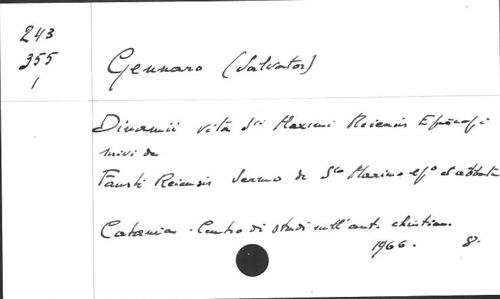 243
355
1
Gennaro (Salvator)
Dinamii vita Sti Maximi Reiensis Episcopi
suivi de
Fausti Reiensis Sermo de Sto Maximo epo et abbate
Catania. Centro di studi sull'ant. christian.
1966. 8°.